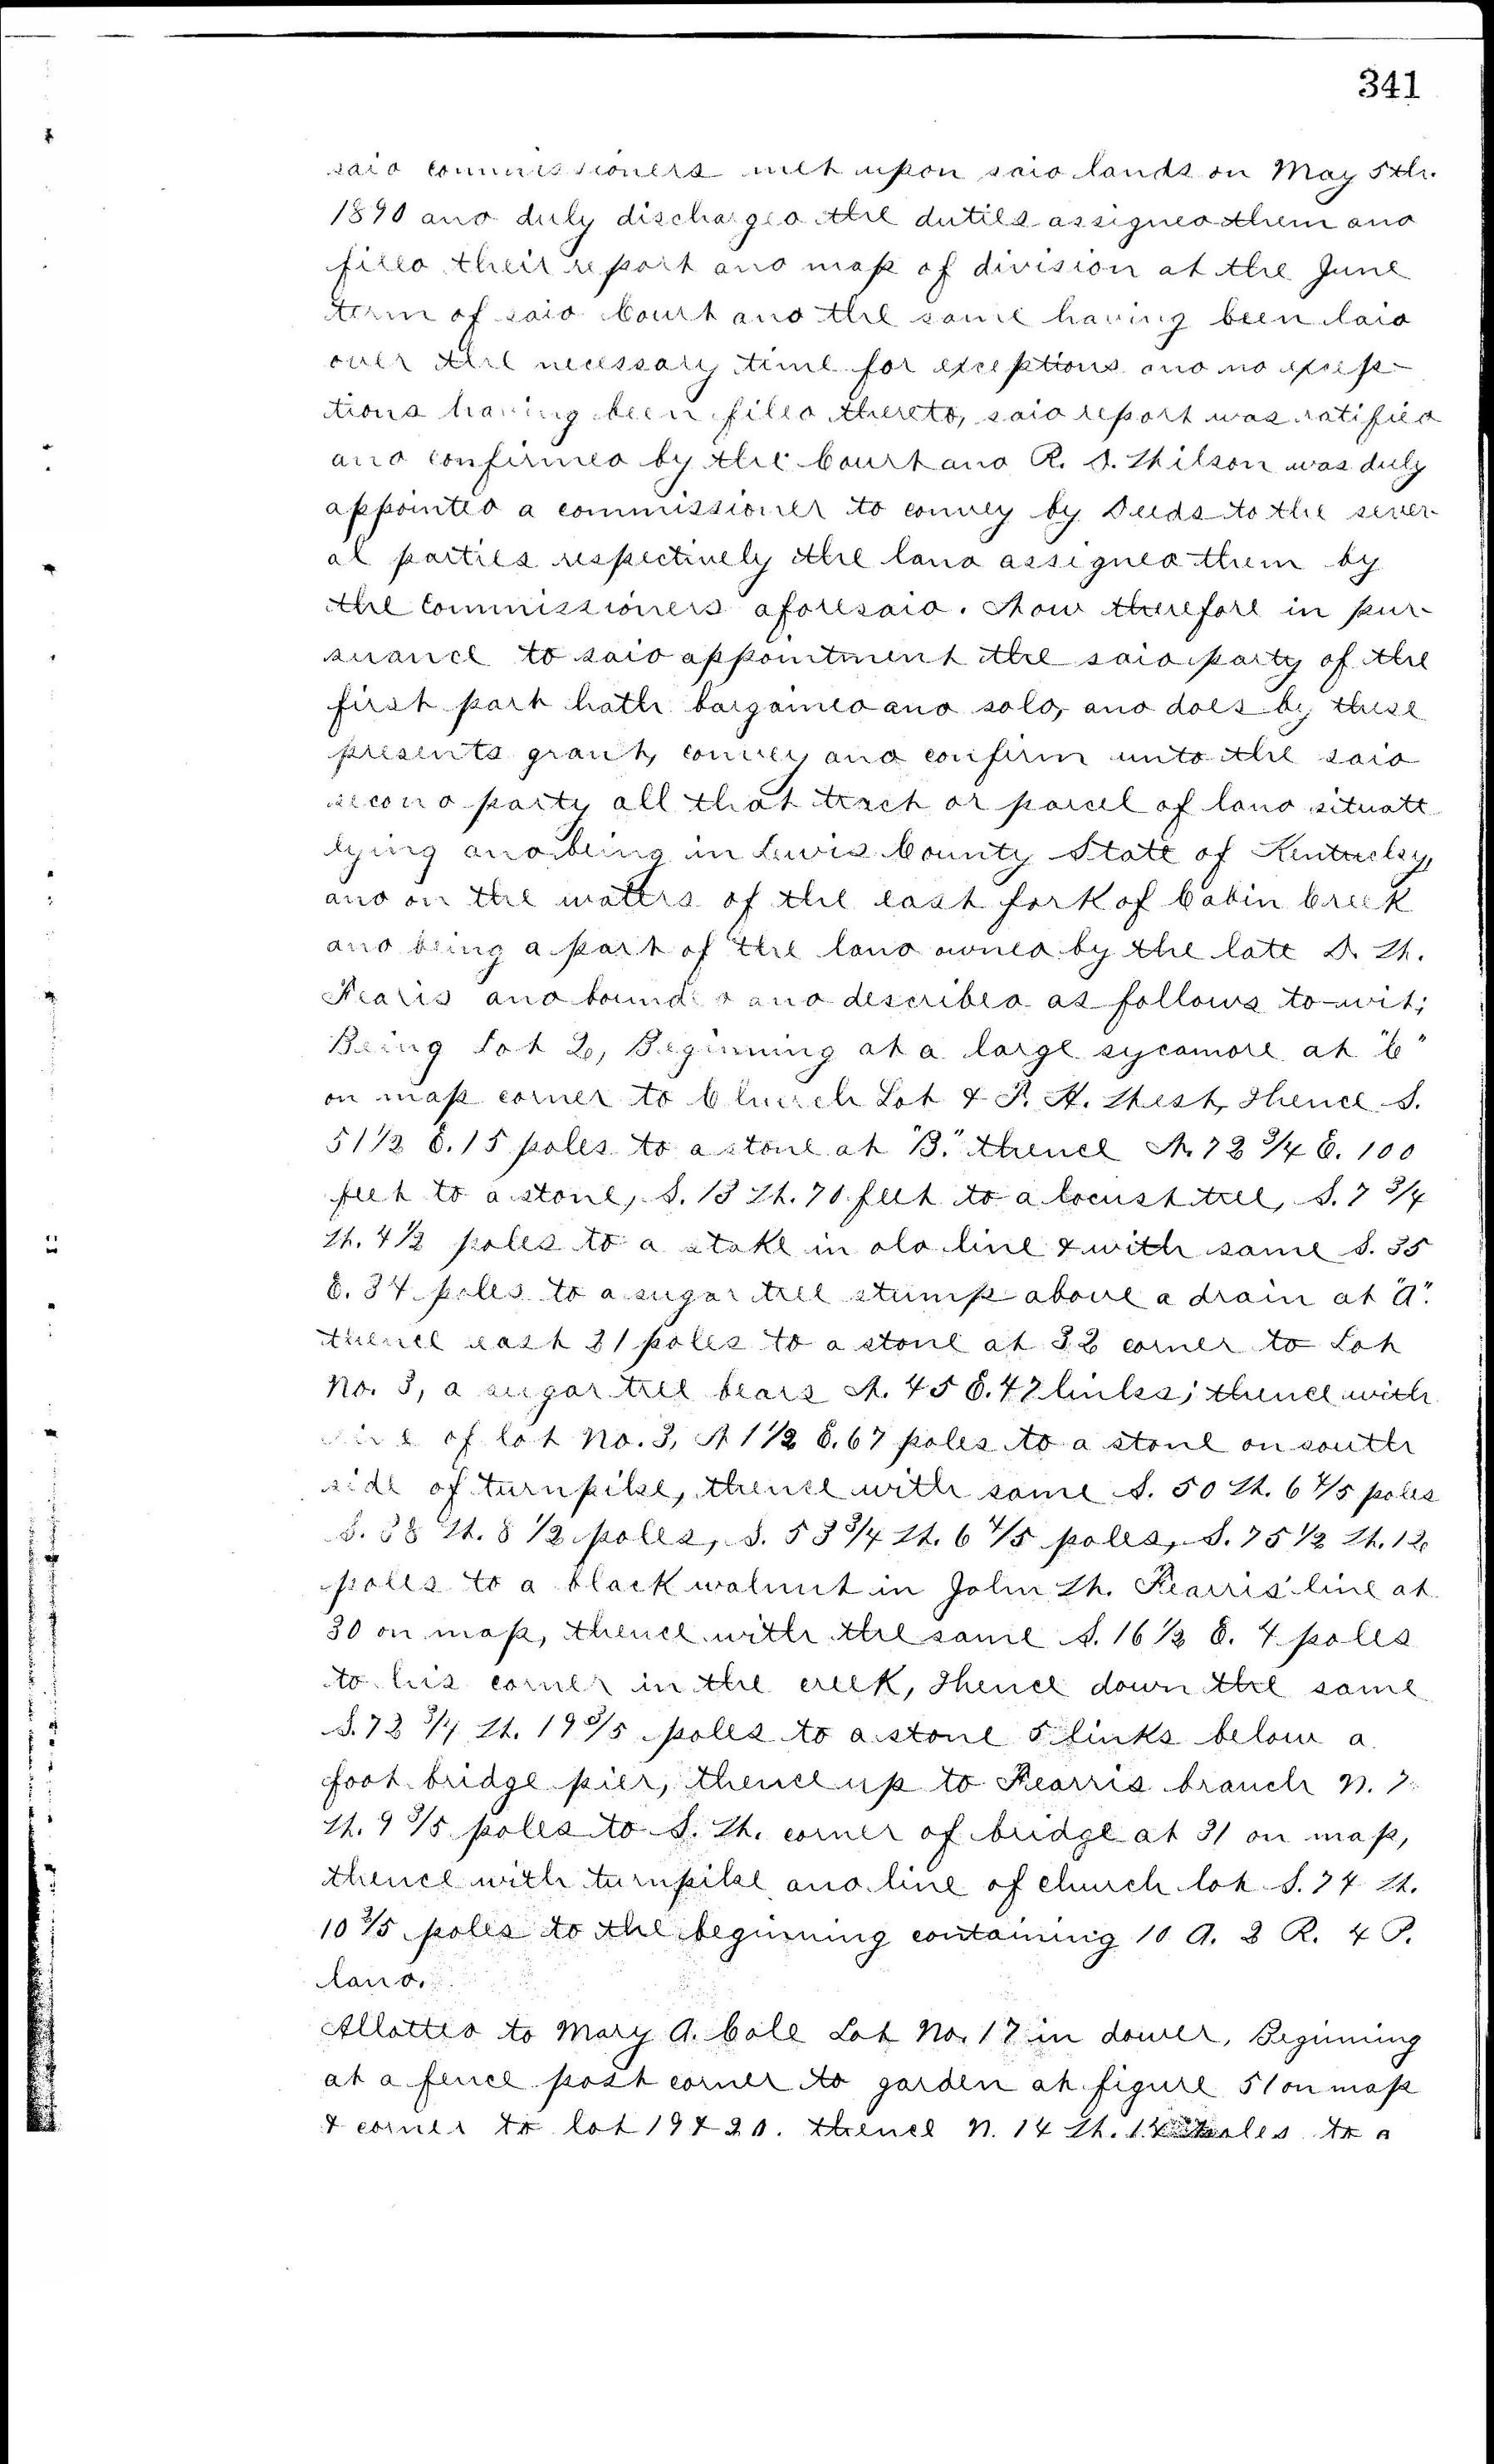 341
said commissioners met upon said lands on May 5th.
1890 and duly discharged the duties assigned them and
filed their report and map of division at the June
term of said Court and the same having been laid
over the necessary time for exceptions and no excep-
tions having been filed thereto, said report was ratified
and confirmed by the Court and R. D. Wilson was duly
appointed a commissioner to convey by Deeds to the sever-
al parties respectively the land assigned them by
the Commissioners aforesaid. Now therefore in pur-
suance to said appointment the said party of the
first part hath bargained and sold, and does by these
presents grant, convey and confirm unto the said
second party all that tract or parcel of land situate
lying and being in Lewis County State of Kentucky,
and on the waters of the east fork of Cabin Creek
and being a part of the land owned by the late D. W.
Fearis and bounded and described as follows to-wit;
Being Lot 2, Beginning at a large sycamore at "C"
on map corner to Church Lot & P. A. West, Thence S.
51 1/2 E. 15 poles to a stone at "B." thence N. 72 3/4 E. 100
feet to a stone, S. 13 W. 70 feet to a locust tree, S. 7 3/4
W. 4 1/2 poles to a stake in old line & with same S. 35
E. 34 poles to a sugar tree stump above a drain at "A."
thence east 21 poles to a stone at 32 corner to Lot
No. 3, a sugar tree bears N. 45 E. 47 links; thence with
line of lot No. 3, N 1 1/2 E. 67 poles to a stone on south
side of turnpike, thence with same S. 50 W. 6 4/5 poles
S. 38 W. 8 1/2 poles, S. 53 3/4 W. 6 4/5 poles, S. 75 1/2 W. 12
poles to a black walnut in John W. Fearris' line at
30 on map, thence with the same S. 16 1/2 E. 4 poles
to his corner in the creek, Thence down the same
S. 72 3/4 W. 19 3/5 poles to a stone 5 links below a
foot bridge pier, thence up to Fearris branch N. 7
W. 9 3/5 poles to S. W. corner of bridge at 31 on map,
thence with turnpike and line of church lot S. 74 W.
10 3/5 poles to the beginning containing 10 A. 2 R. 4 P.
land.
Allotted to Mary A. Cole Lot No. 17 in dower, Beginning
at a fence post corner to garden at figure 51 on map
& corner to lot 19 & 20. thence N. 14 W. poles to a